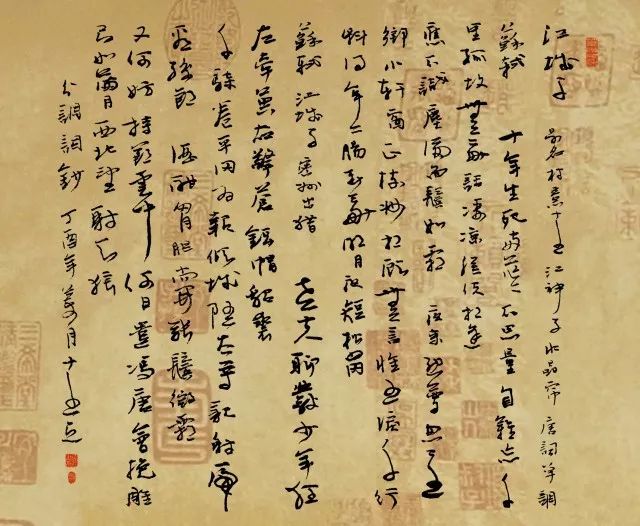 江城子 江神子 水晶帘 唐詞單調
蘇軾 十年生死兩茫茫 不思量 自難忘 千
里孤墳 無處話淒涼 縱使相逢
應不識 塵滿面 鬢如霜 夜來幽夢忽還
鄉 小軒窗 正梳妝 相顧無言 惟有淚千行
料得年年腸斷處 明月夜 短松岡
蘇軾 江城子 密州出獵 老夫聊發少年狂
左牽黃 右擎蒼 錦帽貂裘
千騎卷平岡 為報傾城隨太守 親射虎
看孫郎 酒酣胸膽尚開張 鬢微霜
又何妨 持節雲中 何日遣馮唐 會挽雕
弓如滿月 西北望 射天狼
丁酉年 月十五